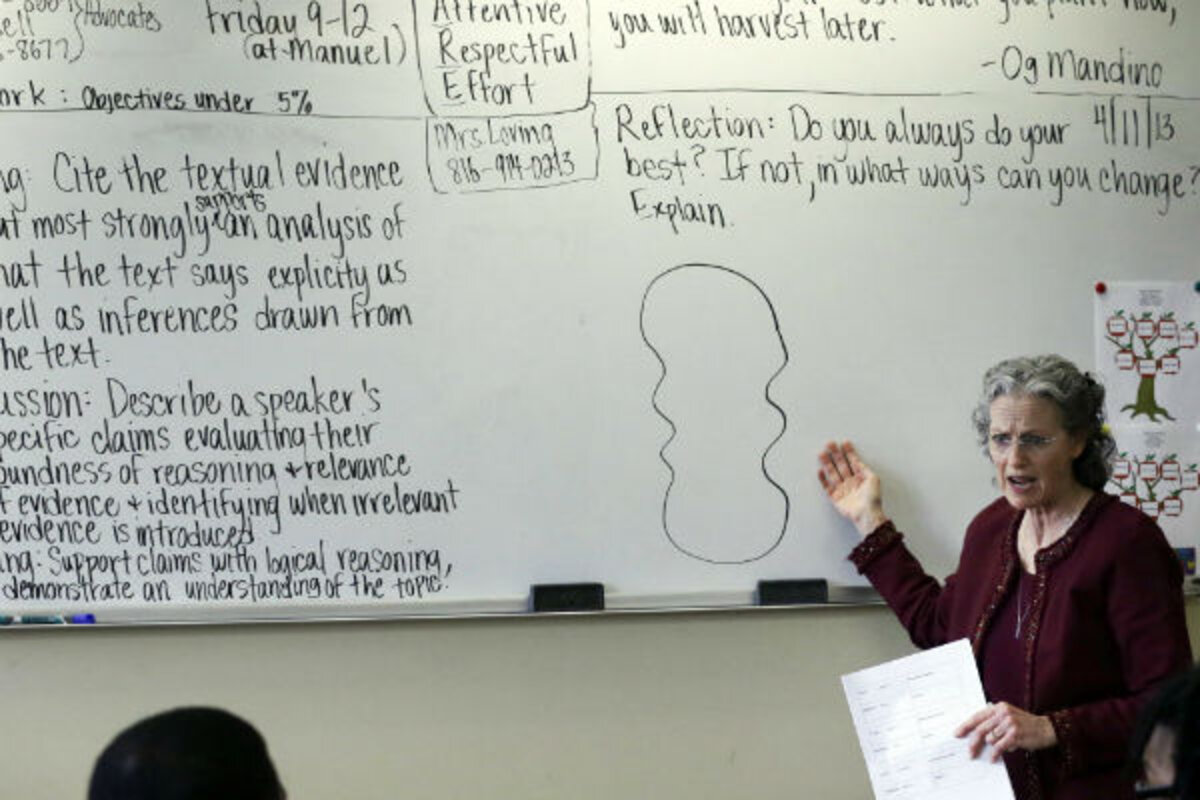 Advocates
-8677)
Friday 9-12
(at Manuel)
ork : Objectives under 5%
Attentive
Respectful
Effort
you will harvest later.
-Og Mandino
Mrs. Loving
Reflection: Do you always do your 4/11/13
best? If not, in what ways can you change?
Explain.
ng: Cite the textual evidence
at most strongly supports an analysis of
hat the text says explicity as
ell as inferences drawn from
he text.
ussion: Describe a speaker's
pecific claims evaluating their
oundness of reasoning + relevance
f evidence + identifying when irrelevant
evidence is introduced
ing: Support claims with logical reasoning,
demonstrate an understanding of the topic.